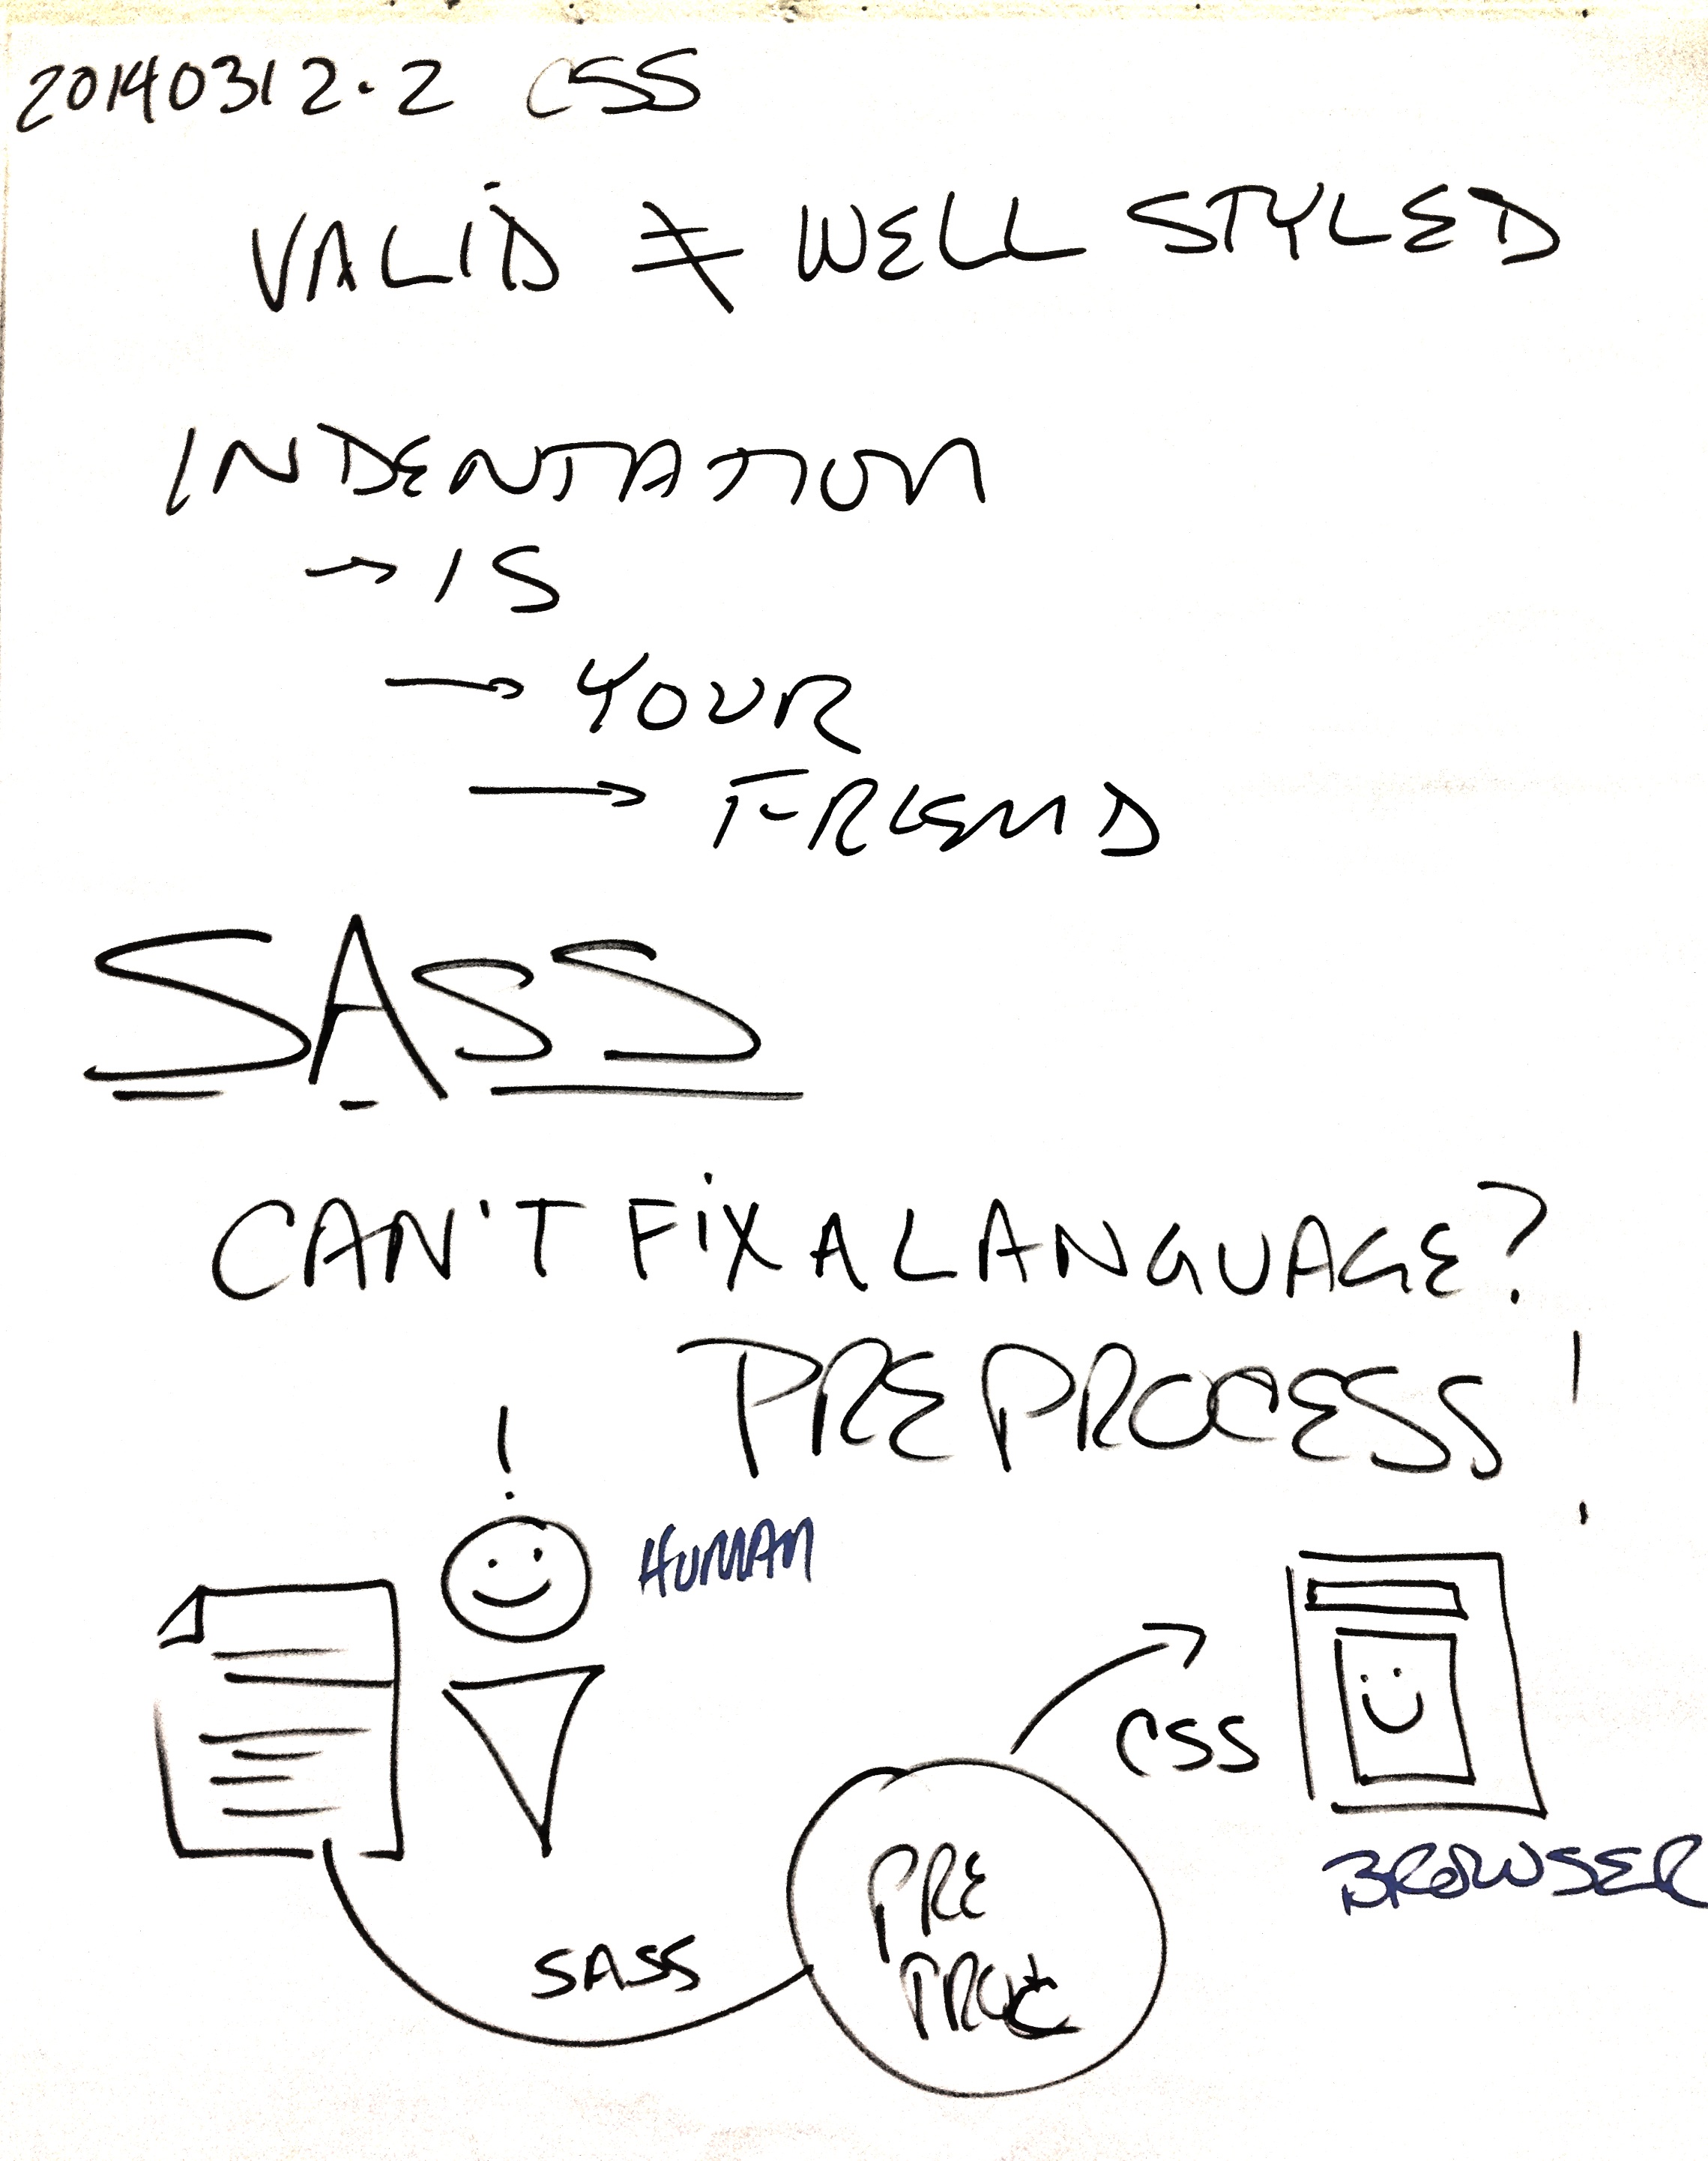 20140312.2 CSS
VALiD ≠ WELL STYLED
INDENTATION
→ IS
→ YOUR
→ FRIEND
SASS
CAN'T FiX A LANGUAGE?
PREPROCESS!
!
HUMAN
CSS
BROWSER
PRE
PROC
SASS